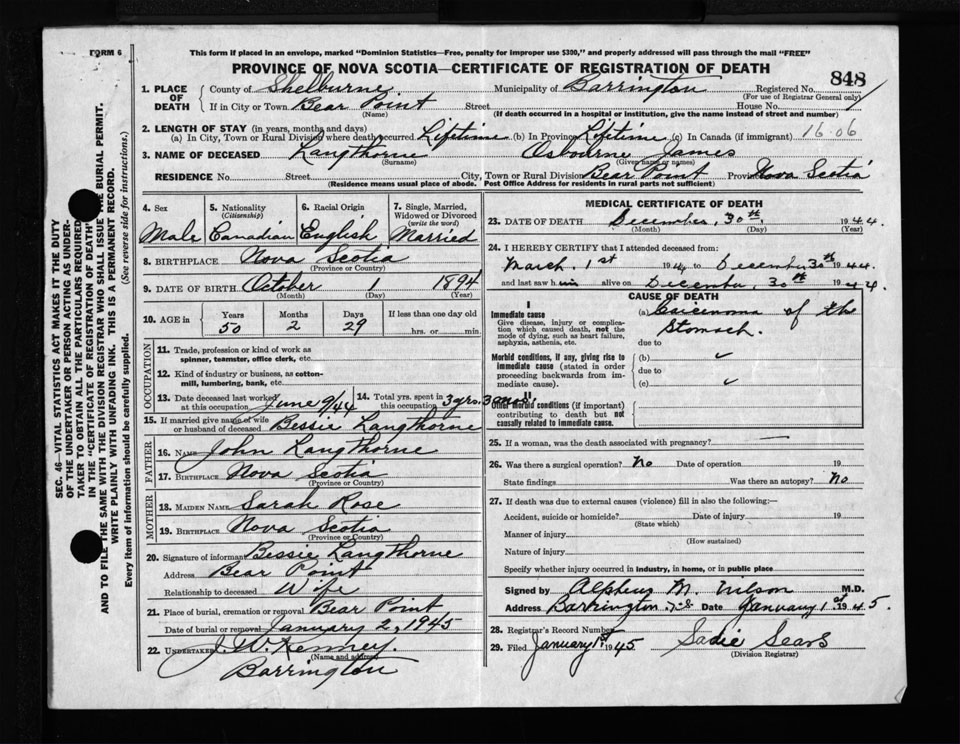 FORM 6
This form if placed in an envelope, marked "Dominion Statistics—Free, penalty for improper use $300," and properly addressed will pass through the mail "FREE"
PROVINCE OF NOVA SCOTIA—CERTIFICATE OF REGISTRATION OF DEATH
848
1. PLACE OF DEATH
County of Shelburne Municipality of Barrington Registered No.
(For use of Registrar General only)
If in City or Town Bear Point Street House No.
(Name) (If death occurred in a hospital or institution, give the name instead of street and number)
2. LENGTH OF STAY (in years, months and days)
(a) In City, Town or Rural Division where death occurred Lifetime (b) In Province Lifetime (c) In Canada (if immigrant) 16.06
3. NAME OF DECEASED Langthorne Osbourne James
(Surname) (Given name or names)
RESIDENCE No. Street City, Town or Rural Division Bear Point Province Nova Scotia
(Residence means usual place of abode. Post Office Address for residents in rural parts not sufficient)
4. Sex
Male
5. Nationality (Citizenship)
Canadian
6. Racial Origin
English
7. Single, Married, Widowed or Divorced (write the word)
Married
8. BIRTHPLACE Nova Scotia
(Province or Country)
9. DATE OF BIRTH October 1 1894
(Month) (Day) (Year)
10. AGE in Years Months Days If less than one day old
50 2 29 hrs. or min.
OCCUPATION
11. Trade, profession or kind of work as spinner, teamster, office clerk, etc.
12. Kind of industry or business, as cotton-mill, lumbering, bank, etc.
13. Date deceased last worked at this occupation June 9/44
14. Total yrs. spent in this occupation 3 yrs.
15. If married give name of wife or husband of deceased Bessie Langthorne
FATHER
16. NAME John Langthorne
17. BIRTHPLACE Nova Scotia
(Province or Country)
MOTHER
18. MAIDEN NAME Sarah Rose
19. BIRTHPLACE Nova Scotia
(Province or Country)
20. Signature of informant Bessie Langthorne
Address Bear Point
Relationship to deceased Wife
21. Place of burial, cremation or removal Bear Point
Date of burial or removal January 2, 1945
22. UNDERTAKER J. W. Kenney.
(Name and address)
Barrington
MEDICAL CERTIFICATE OF DEATH
23. DATE OF DEATH December, 30th, 1944
(Month) (Day) (Year)
24. I HEREBY CERTIFY that I attended deceased from:
March, 1st 1944 to December 30th 1944.
and last saw him alive on December, 30th 1944.
CAUSE OF DEATH
I
Immediate cause
Give disease, injury or complication which caused death, not the mode of dying, such as heart failure, asphyxia, asthenia, etc.
(a) of the Stomach.
due to
Morbid conditions, if any, giving rise to immediate cause (stated in order proceeding backwards from immediate cause).
(b) ✓
due to
(c) ✓
II
Other morbid conditions (if important) contributing to death but not causally related to immediate cause.
25. If a woman, was the death associated with pregnancy? —
26. Was there a surgical operation? No Date of operation 19
State findings Was there an autopsy? No
27. If death was due to external causes (violence) fill in also the following:—
Accident, suicide or homicide? Date of injury 19
(State which)
Manner of injury
(How sustained)
Nature of injury
Specify whether injury occurred in industry, in home, or in public place
Signed by Alpheus M. Wilson M.D.
Address Barrington, N.S. Date January 1st 1945.
28. Registrar's Record Number
29. Filed January 1st 1945 Sadie Sears
(Division Registrar)
SEC. 46—VITAL STATISTICS ACT MAKES IT THE DUTY
OF THE UNDERTAKER OR PERSON ACTING AS UNDER-
TAKER TO OBTAIN ALL THE PARTICULARS REQUIRED
IN THE "CERTIFICATE OF REGISTRATION OF DEATH"
AND TO FILE THE SAME WITH THE DIVISION REGISTRAR WHO SHALL ISSUE THE BURIAL PERMIT.
WRITE PLAINLY WITH UNFADING INK. THIS IS A PERMANENT RECORD.
Every item of information should be carefully supplied. (See reverse side for instructions.)